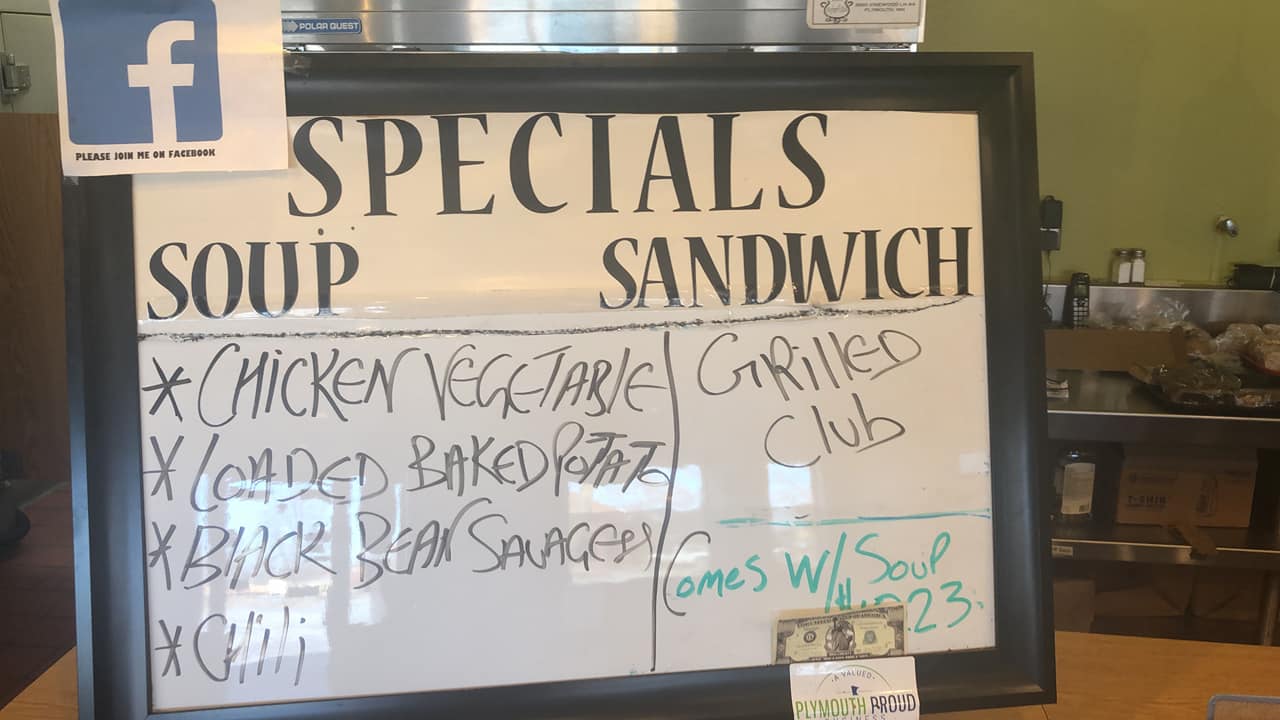 POLAR QUEST
PLYMOUTH, MN
f
PLEASE JOIN ME ON FACEBOOK
SPECIALS
SOUP SANDWICH
* CHICKEN VEGETABLE
* LOADED BAKED POTATO
* BLACK BEAN
* CHili
GRillED
Club
Comes W/ Soup
23.
A VALUED
PLYMOUTH PROUD
BUSINESS